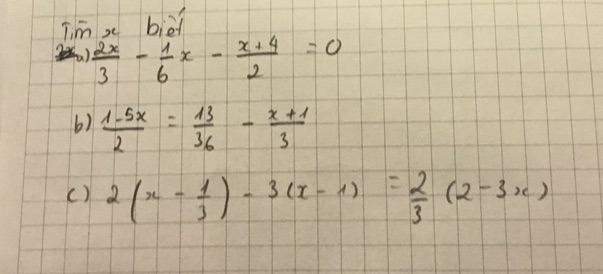 Tìm x biết
a) 2x/3 - 1/6 x - x+4/2 = 0
b) 1-5x/2 = 13/36 - x+1/3
c) 2(x - 1/3) - 3(x-1) = 2/3 (2-3x)